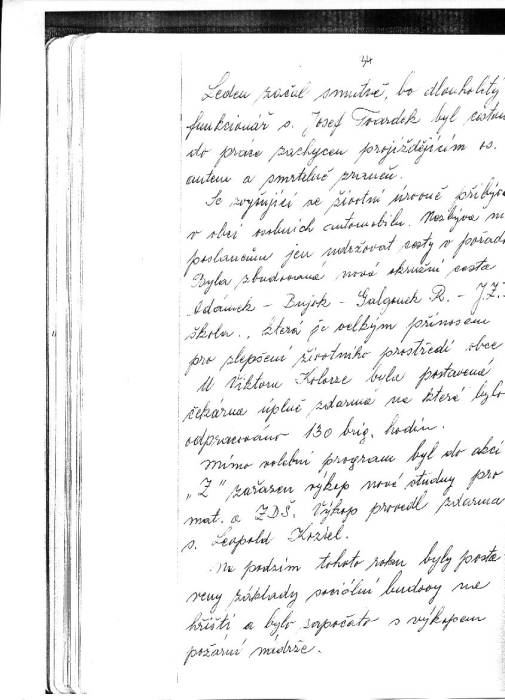 44
Leden začal smutně, bo dlouholetý
funkcionář s. Josef Tvardek byl cestou
do práce zachycen projíždějícím os.
autem a smrtelně zraněn.
Se zvyšující se životní úrovně přibývá
v obci osobních automobilu. Nezbývá
poslancům jen udržovat cesty v pořad
Byla zbudovaná nová okružní cesta
Adámek - Bujok - Galgonek R. - J.Z.
škola., která je velkým přínosem
pro zlepšení životního prostředí obce
U Viktora Kolorze byla postavená
čekárna úplně zdarma na která bylo
odpracováno 130 brig. hodin.
Mimo volební program byl do akcí
„Z" zařazen výkop nové studny pro
mat. a ZDŠ. Výkop provedl zdarma
s. Leopold Koziel.
Na podzim tohoto roku byly posta-
veny základy sociální budovy na
hřišti a bylo započato s výkopem
požární nádrže.